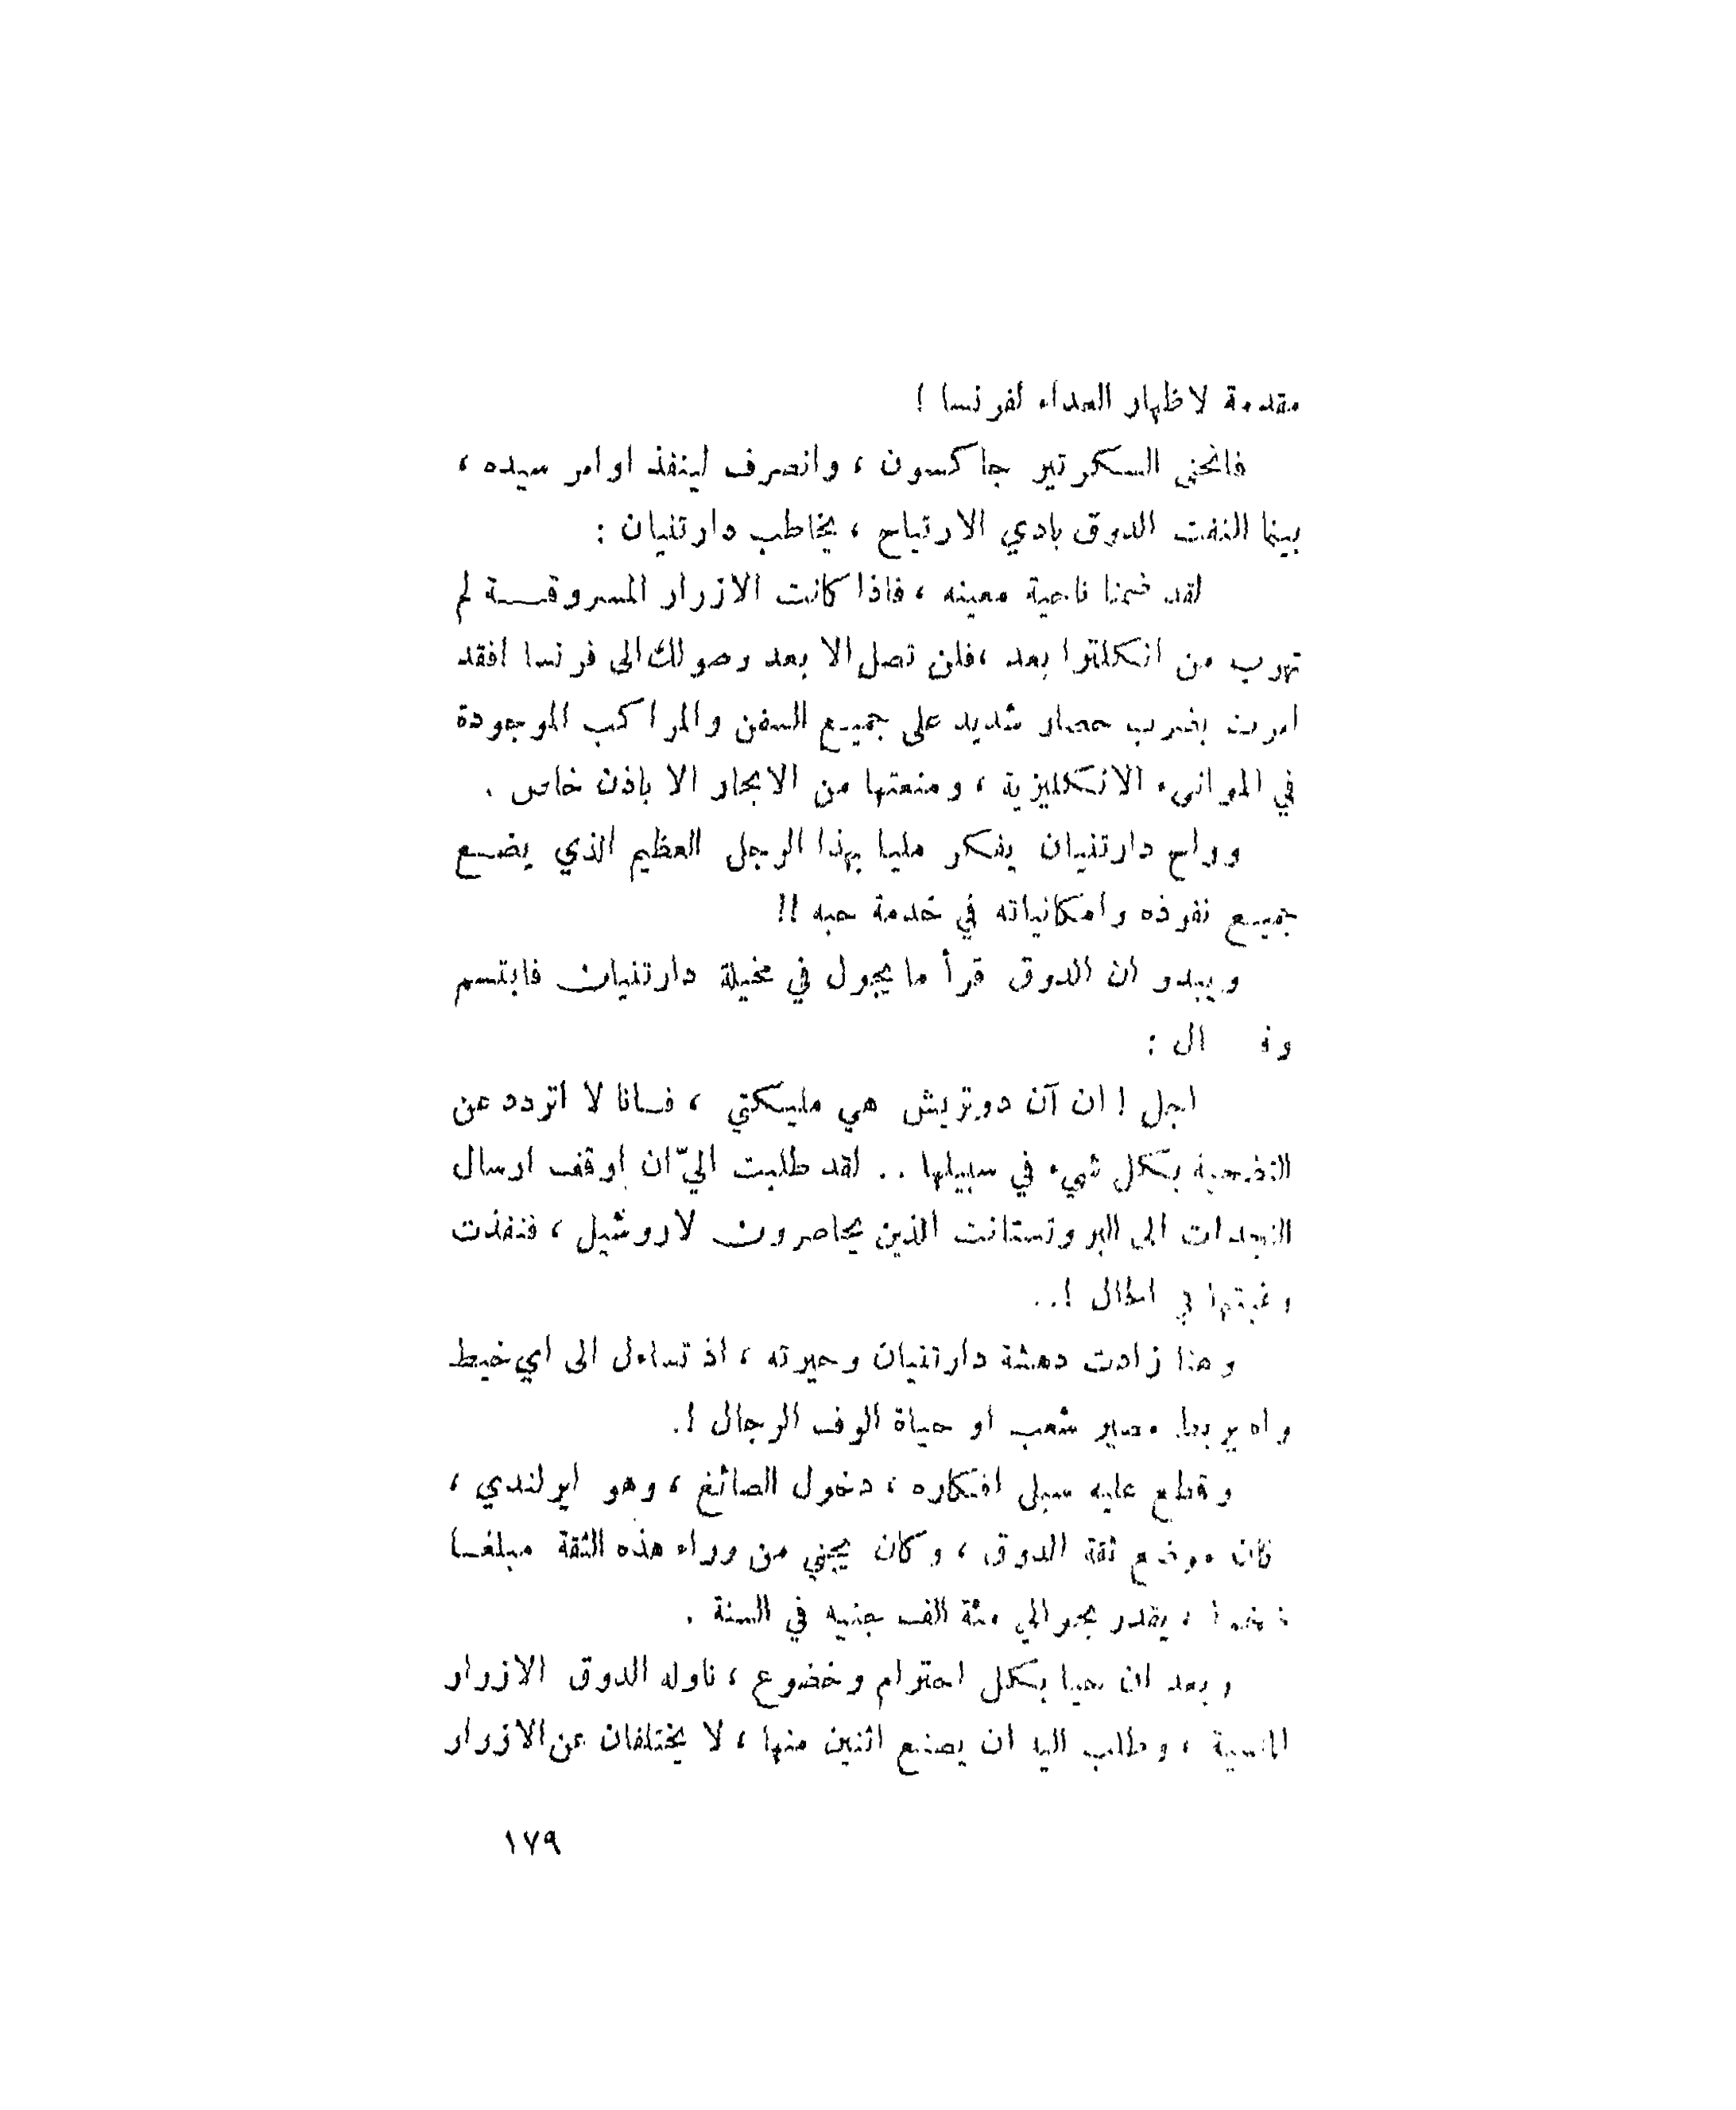 مقدمة لاظهار العداء لفرنسا !
فانحنى السكرتير جاكسون ، وانصرف لينفذ اوامر سيده ،
بينما التفت الدوق بادي الارتياح ، يخاطب دارتنيان :
لقد ضمنا ناحية معينه ، فاذا كانت الازرار المسروقة لم
تهرب من انكلترا بعد ، فلن تصل الا بعد وصولك الى فرنسا افقد
امرت بضرب حصار شديد على جميع السفن والمراكب الموجودة
في الموانىء الانكليزية ، ومنعتها من الابحار الا باذن خاص .
وراح دارتنيان يفكر مليا بهذا الرجل العظيم الذي يضع
جميع نفوذه وامكانياته في خدمة حبه !!
ويبدو ان الدوق قرأ ما يجول في مخيلة دارتنيان فابتسم
وقال :
اجل ! ان آن دوتريش هي مليكتي ، فانا لا اتردد عن
التضحية بكل شيء في سبيلها .. لقد طلبت اليّ ان اوقف ارسال
النجدات الى البروتستانت الذين يحاصرون لاروشيل ، فنفذت
رغبتها في الحال !..
وهنا زادت دهشة دارتنيان وحيرته ، اذ تساءل الى اي خيط
واه يربط مصير شعب او حياة الوف الرجال !.
وقطع عليه سبل افكاره ، دخول الصائغ ، وهو ايرلندي ،
كان موضع ثقة الدوق ، وكان يجني من وراء هذه الثقة مبلغا
ضخما ، يقدر بحوالي مئة الف جنيه في السنة .
وبعد ان حيا بكل احترام وخضوع ، ناوله الدوق الازرار
الماسية ، وطلب اليه ان يصنع اثنين منها ، لا يختلفان عن الازرار
١٧٩